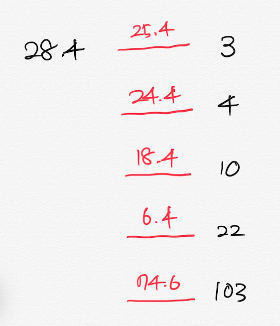 28.4 25.4 3
24.4 4
18.4 10
6.4 22
74.6 103